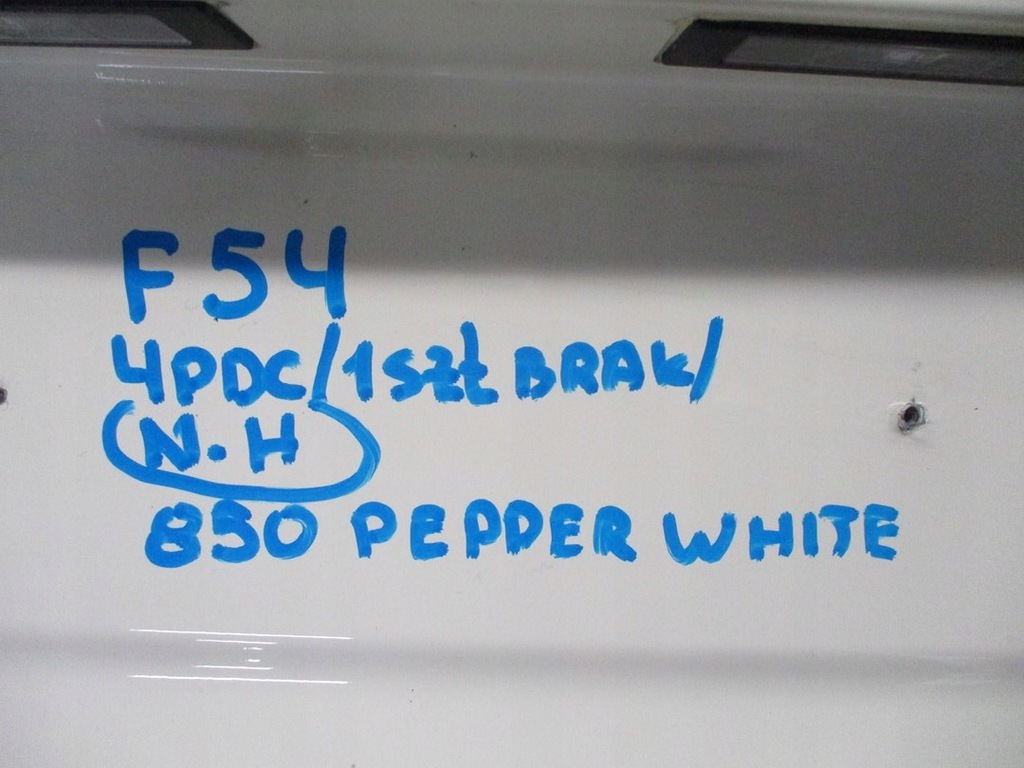 F54
4PDC/1SZT BRAK/
N.H
850 PEPPER WHITE